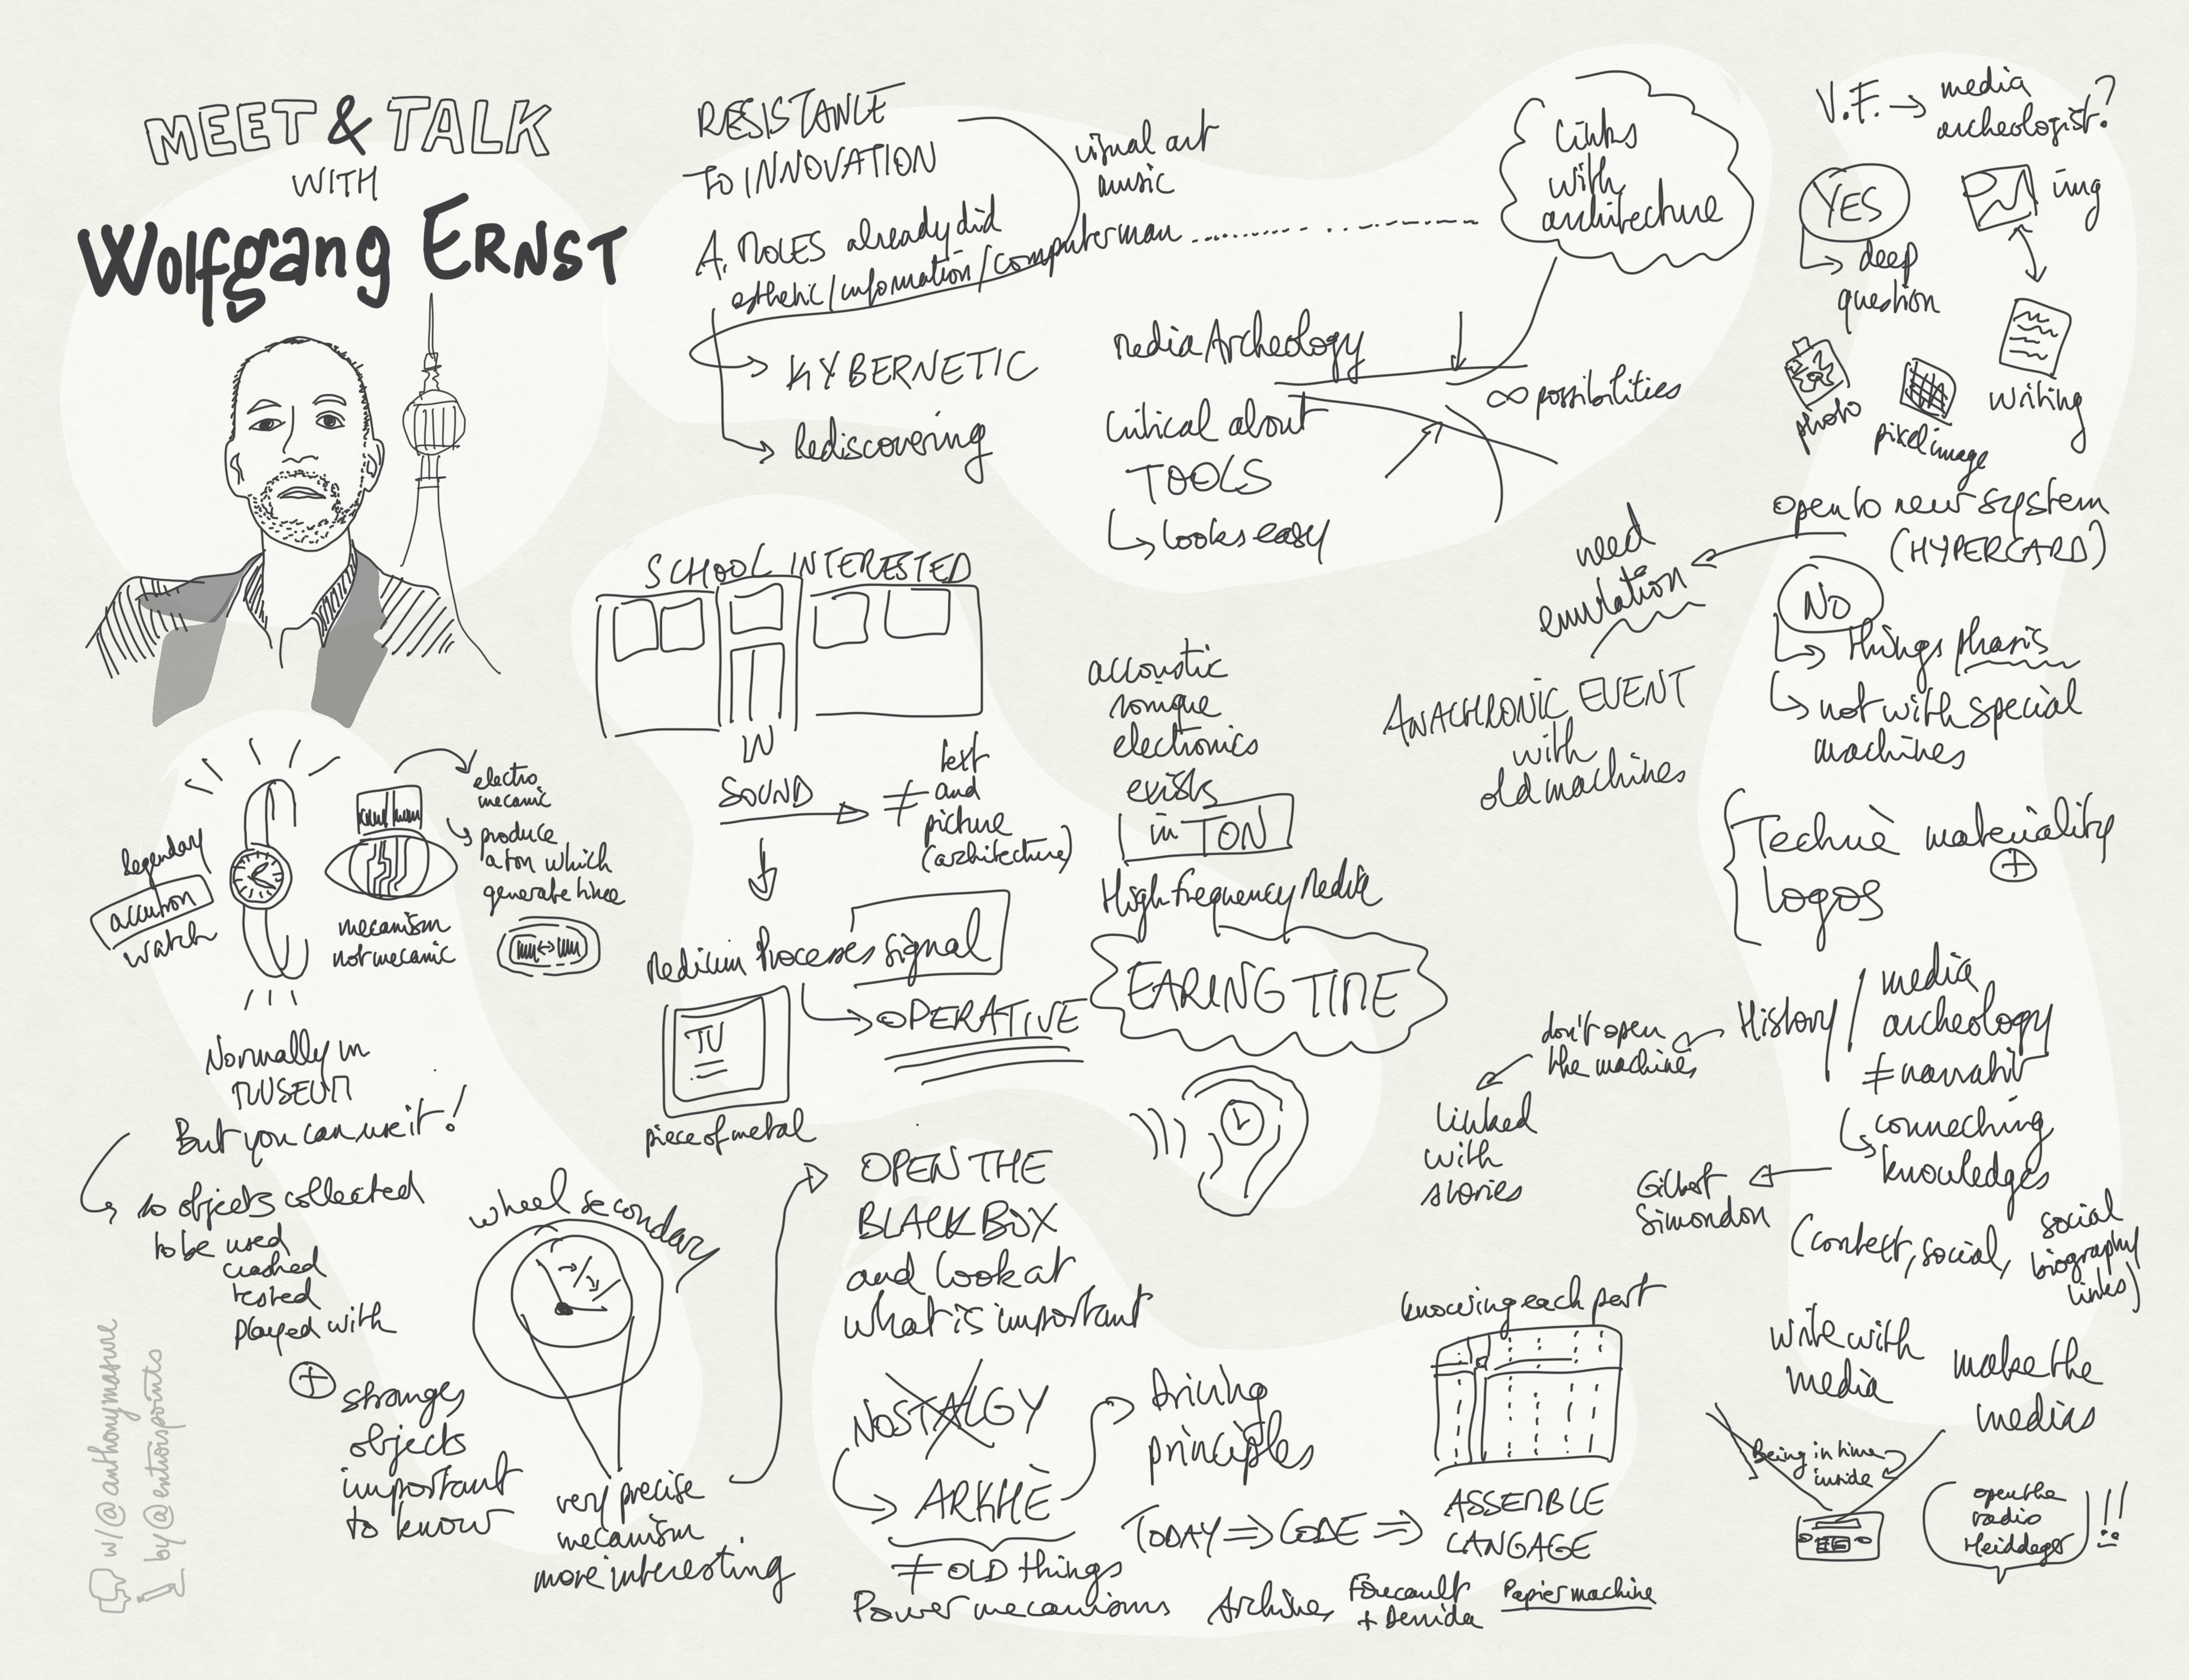 MEET & TALK
WITH
Wolfgang ERNST
legendary
accutron
watch
mecanism
not mecanic
electro
mecanic
produce
a ton which
generate time
Normally in
MUSEUM
But you can use it!
so objects collected
to be used
crashed
tested
played with
+ stranges
objects
important
to know
wheel secondary
very precise
mecanism
more interesting
w/@anthonymasure
by@entrerspoints
RESISTANCE
TO INNOVATION
visual art
music
A. MOLES already did
esthetic/information/computer man
KYBERNETIC
Rediscovering
Links
with
architecture
Media Archeology
∞ possibilities
Critical about
TOOLS
looks easy
SCHOOL INTERESTED
IN
SOUND
≠ text
and
picture
(architecture)
Medium Processes signal
OPERATIVE
TV
piece of metal
accoustic
sonique
electronics
exists
in TON
High frequency Media
EARING TIME
OPEN THE
BLACK BOX
and look at
what is important
NOSTALGY
ARKHÈ
≠ OLD things
Power mecanisms
driving
principles
TODAY ⇒ CODE ⇒
ASSEMBLE
LANGAGE
knowing each part
Archives
Foucault
+ Derrida
Papier machine
V.F. → media
archeologist?
YES
deep
question
img
writing
photo
pixel image
open to new system
(HYPERCARD)
need
emulation
ANACHRONIC EVENT
with
old machines
NO
things
not with special
machines
Technè materiality
+
logos
History / media
archeology
≠ narrativ
don't open
the machines
linked
with
stories
connecting
knowledges
Gilbert
Simondon
(context, social, social
biography
links)
write with
media
make the
medias
Being in time
inside
open the
radio
Heiddeger
!!!